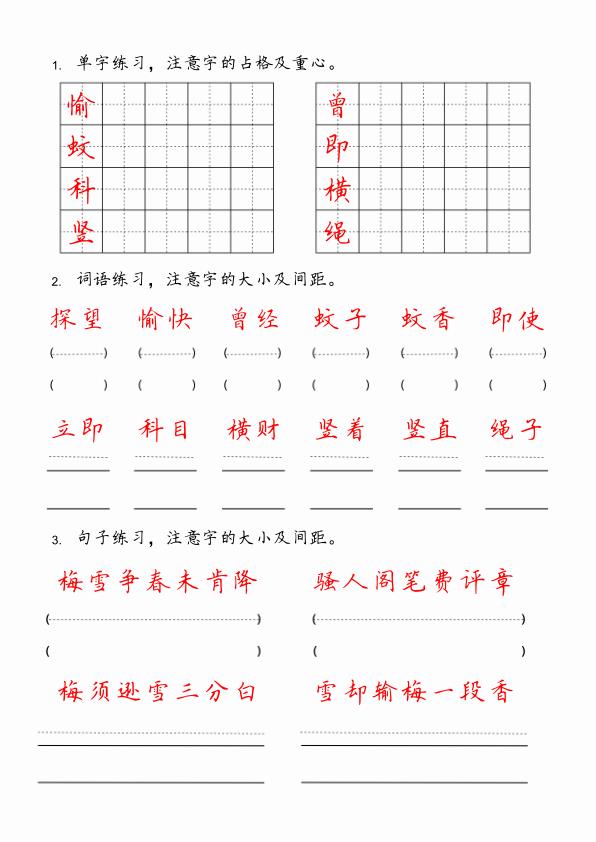 1. 单字练习，注意字的占格及重心。
愉 曾
蚊 即
科 横
竖 绳
2. 词语练习，注意字的大小及间距。
探望 愉快 曾经 蚊子 蚊香 即使
( ) ( ) ( ) ( ) ( ) ( )
( ) ( ) ( ) ( ) ( ) ( )
立即 科目 横财 竖着 竖直 绳子
3. 句子练习，注意字的大小及间距。
梅雪争春未肯降 骚人阁笔费评章
( ) ( )
( ) ( )
梅须逊雪三分白 雪却输梅一段香